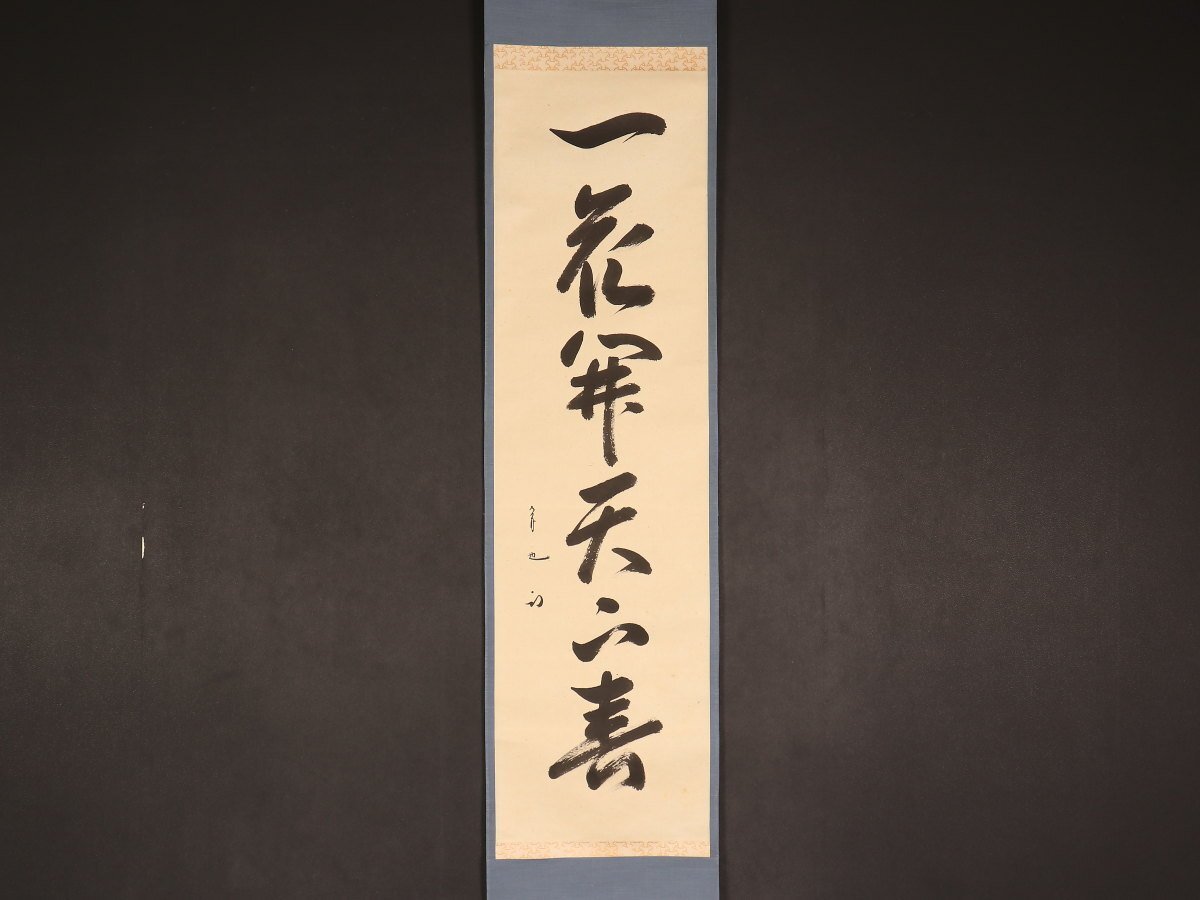 一花開天下春